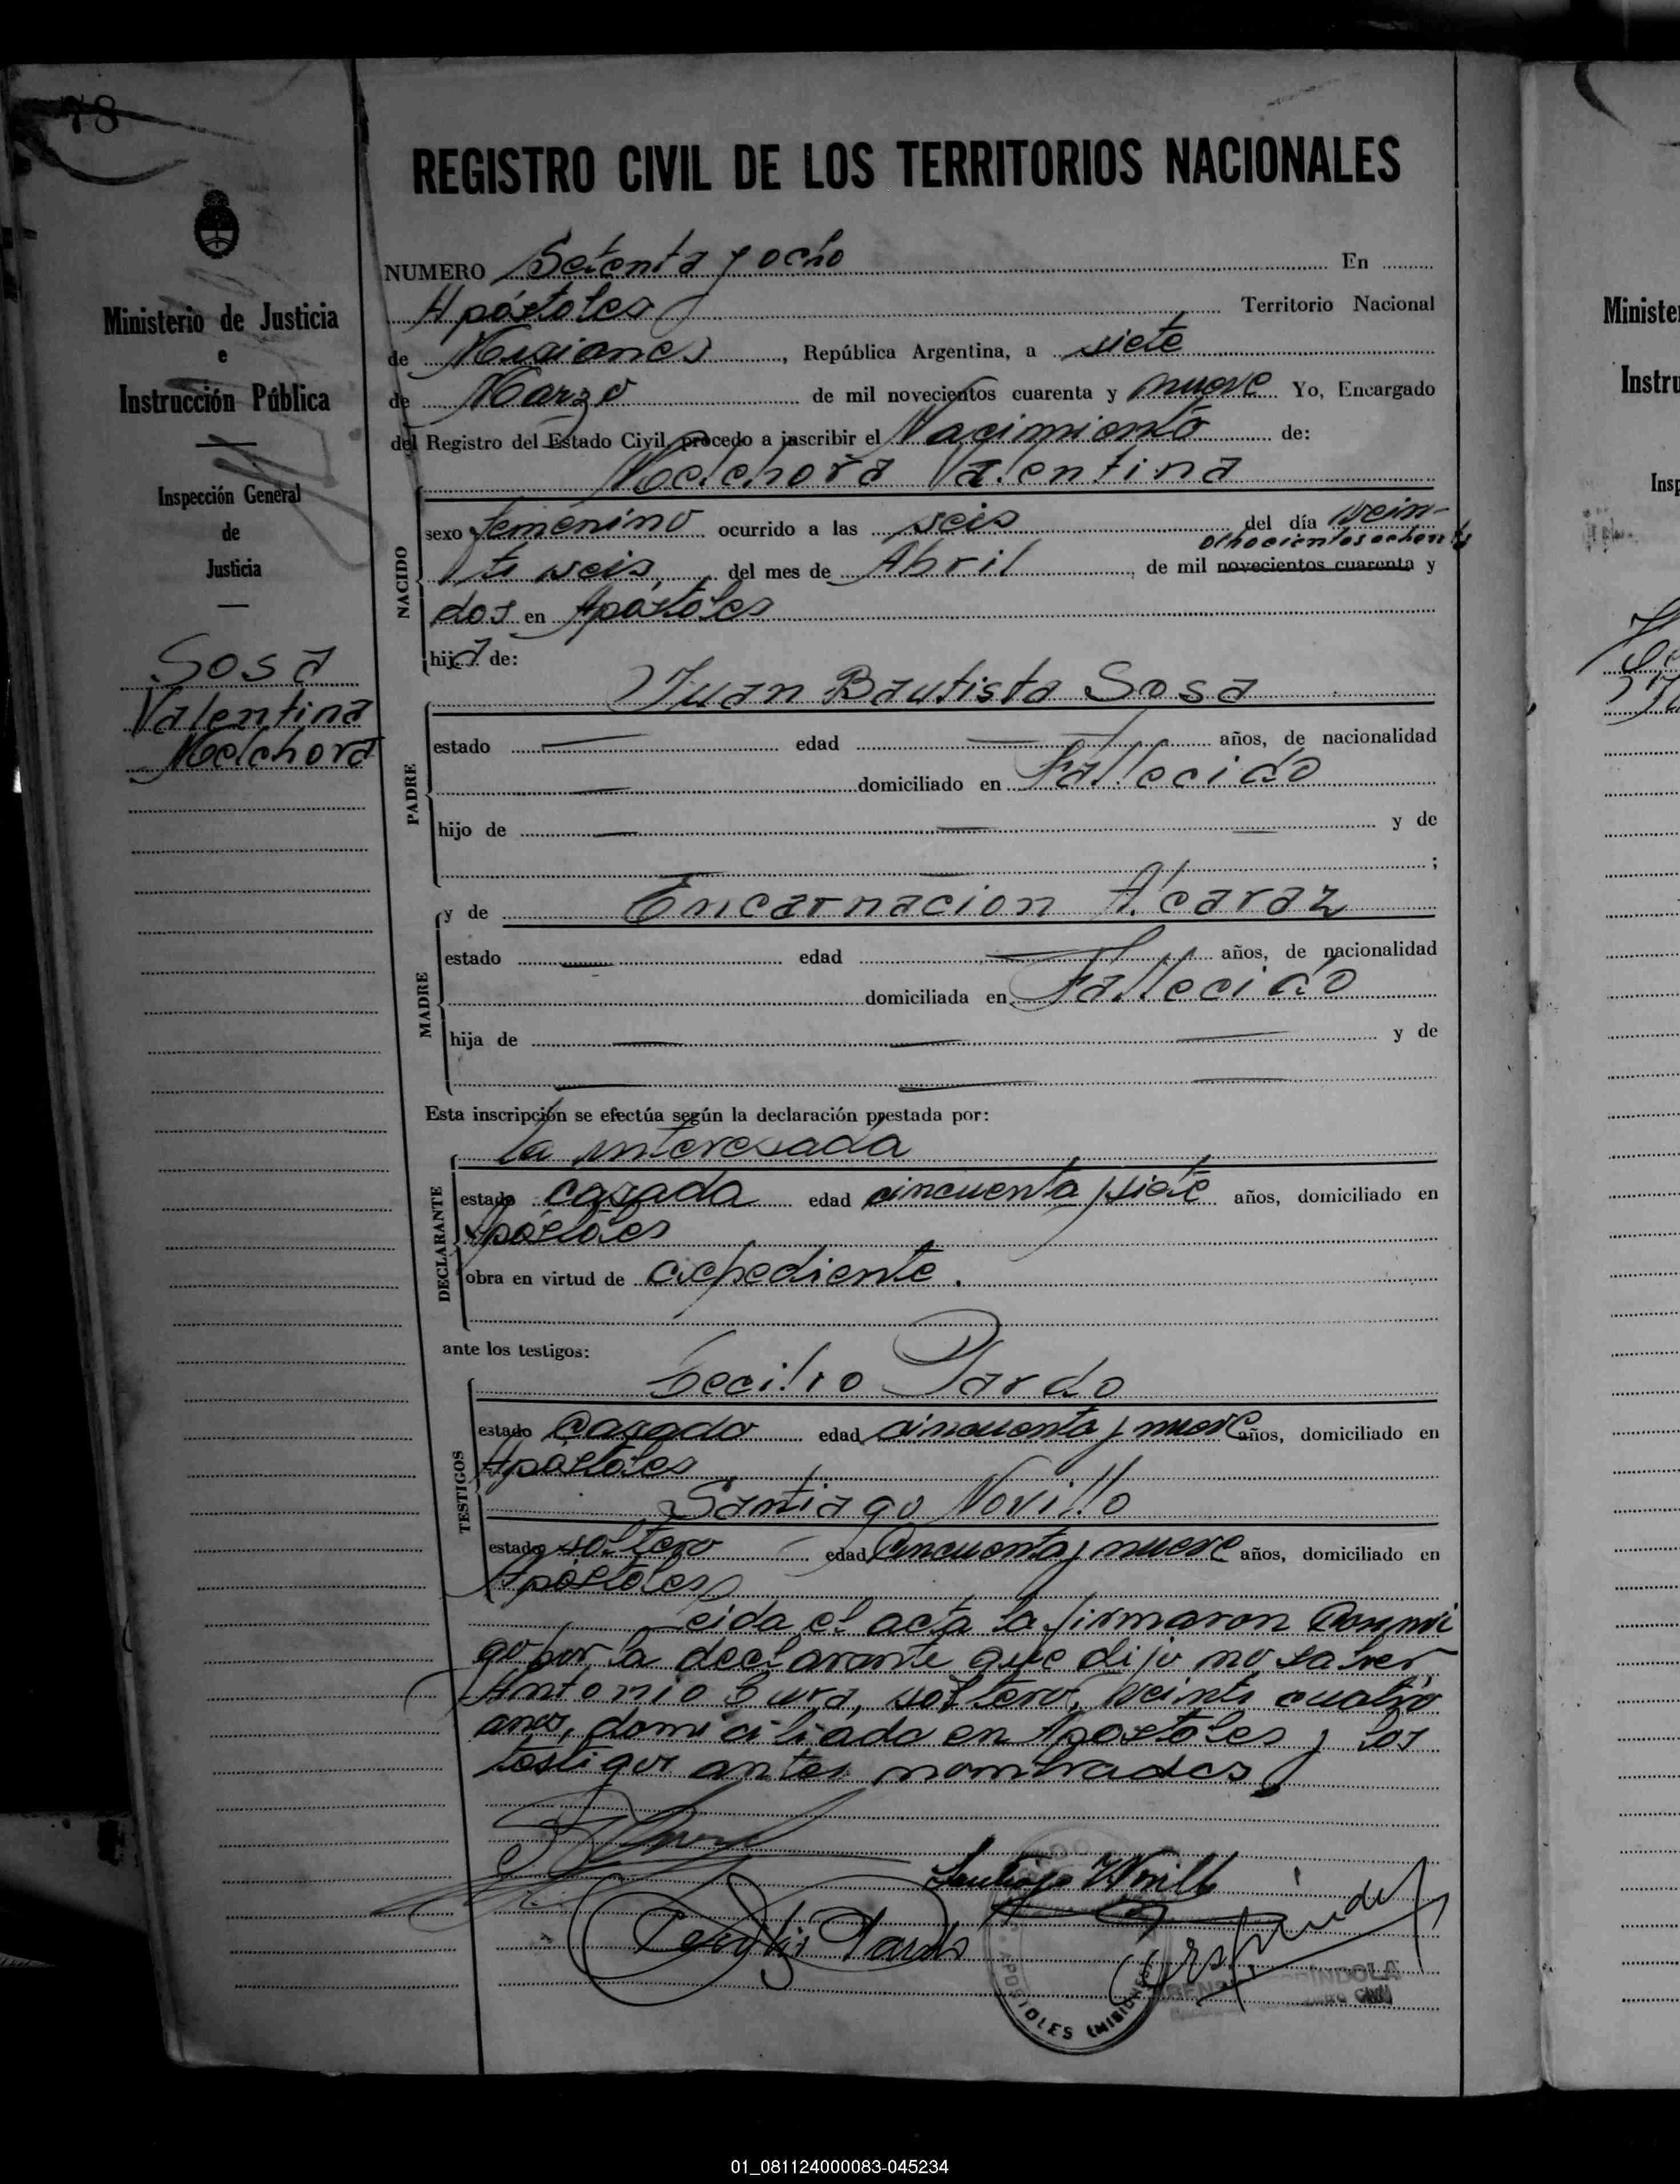 78
REGISTRO CIVIL DE LOS TERRITORIOS NACIONALES
Ministerio de Justicia
e
Instrucción Pública
Inspección General
de
Justicia
Sosa
Valentina
Melchora
NUMERO Setenta y ocho En
Apóstoles Territorio Nacional
de Misiones, República Argentina, a siete
de Marzo de mil novecientos cuarenta y nueve Yo, Encargado
del Registro del Estado Civil, procedo a inscribir el Nacimiento de:
Melchora Valentina
NACIDO
sexo femenino ocurrido a las seis del día vein-
ochocientos ochenta
te seis, del mes de Abril, de mil novecientos cuarenta y
dos en Apóstoles
hija de:
Juan Bautista Sosa
PADRE
estado edad años, de nacionalidad
domiciliado en Fallecido
hijo de y de
;
y de Encarnacion Alcaraz
MADRE
estado edad años, de nacionalidad
domiciliada en Fallecido
hija de y de
Esta inscripción se efectúa según la declaración prestada por:
la interesada
DECLARANTE
estado casada edad cincuenta y siete años, domiciliado en
Apóstoles
obra en virtud de expediente.
ante los testigos:
Cecilio Pardo
TESTIGOS
estado Casado edad cincuenta y nueve años, domiciliado en
Apóstoles
Santiago Novillo
estado soltero edad Cincuenta y nueve años, domiciliado en
Apóstoles
Leida el acta la firmaron Conmi
go por la declarante que dijo no saber
Antonio soltero, veinte cuatro
anos, domiciliado en Apostoles y los
testigos antes nombrados
Santiago Novillo
Cecilio Pardo
APOSTOLES (MISIONES)
01_081124000083-045234
Ministe
Instru
Insp